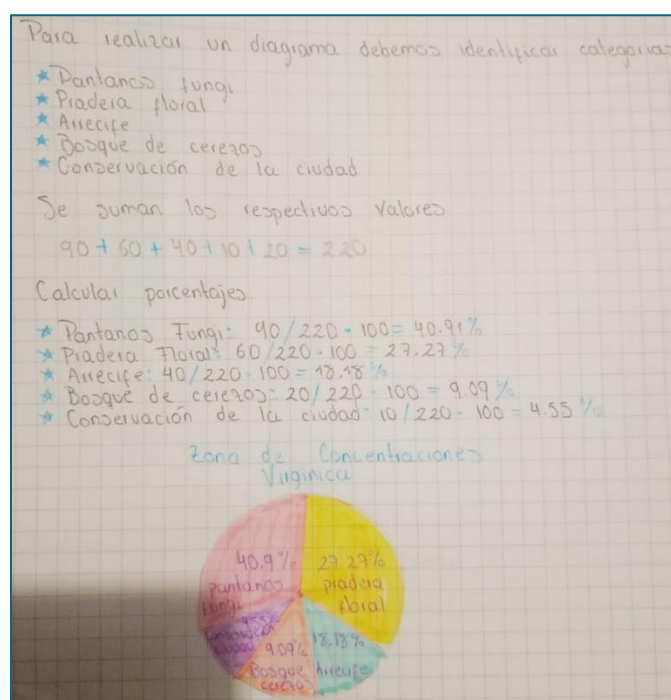 Para realizar un diagrama debemos identificar categorias
* Pantanos fungi
* Pradera floral
* Arrecife
* Bosque de cerezos
* Conservación de la ciudad
Se suman los respectivos valores
90 + 60 + 40 + 10 + 20 = 220
Calcular porcentajes
* Pantanos Fungi: 90/220 · 100 = 40.91%
* Pradera Floral: 60/220 · 100 = 27.27%
* Arrecife: 40/220 · 100 = 18.18%
* Bosque de cerezos: 20/220 · 100 = 9.09%
* Conservación de la ciudad: 10/220 · 100 = 4.55%
Zona de Concentraciones
Virginica
40.9%
pantanos
fungi
27.27%
pradera
floral
18.18%
Arrecife
9.09%
Bosque
cerezos